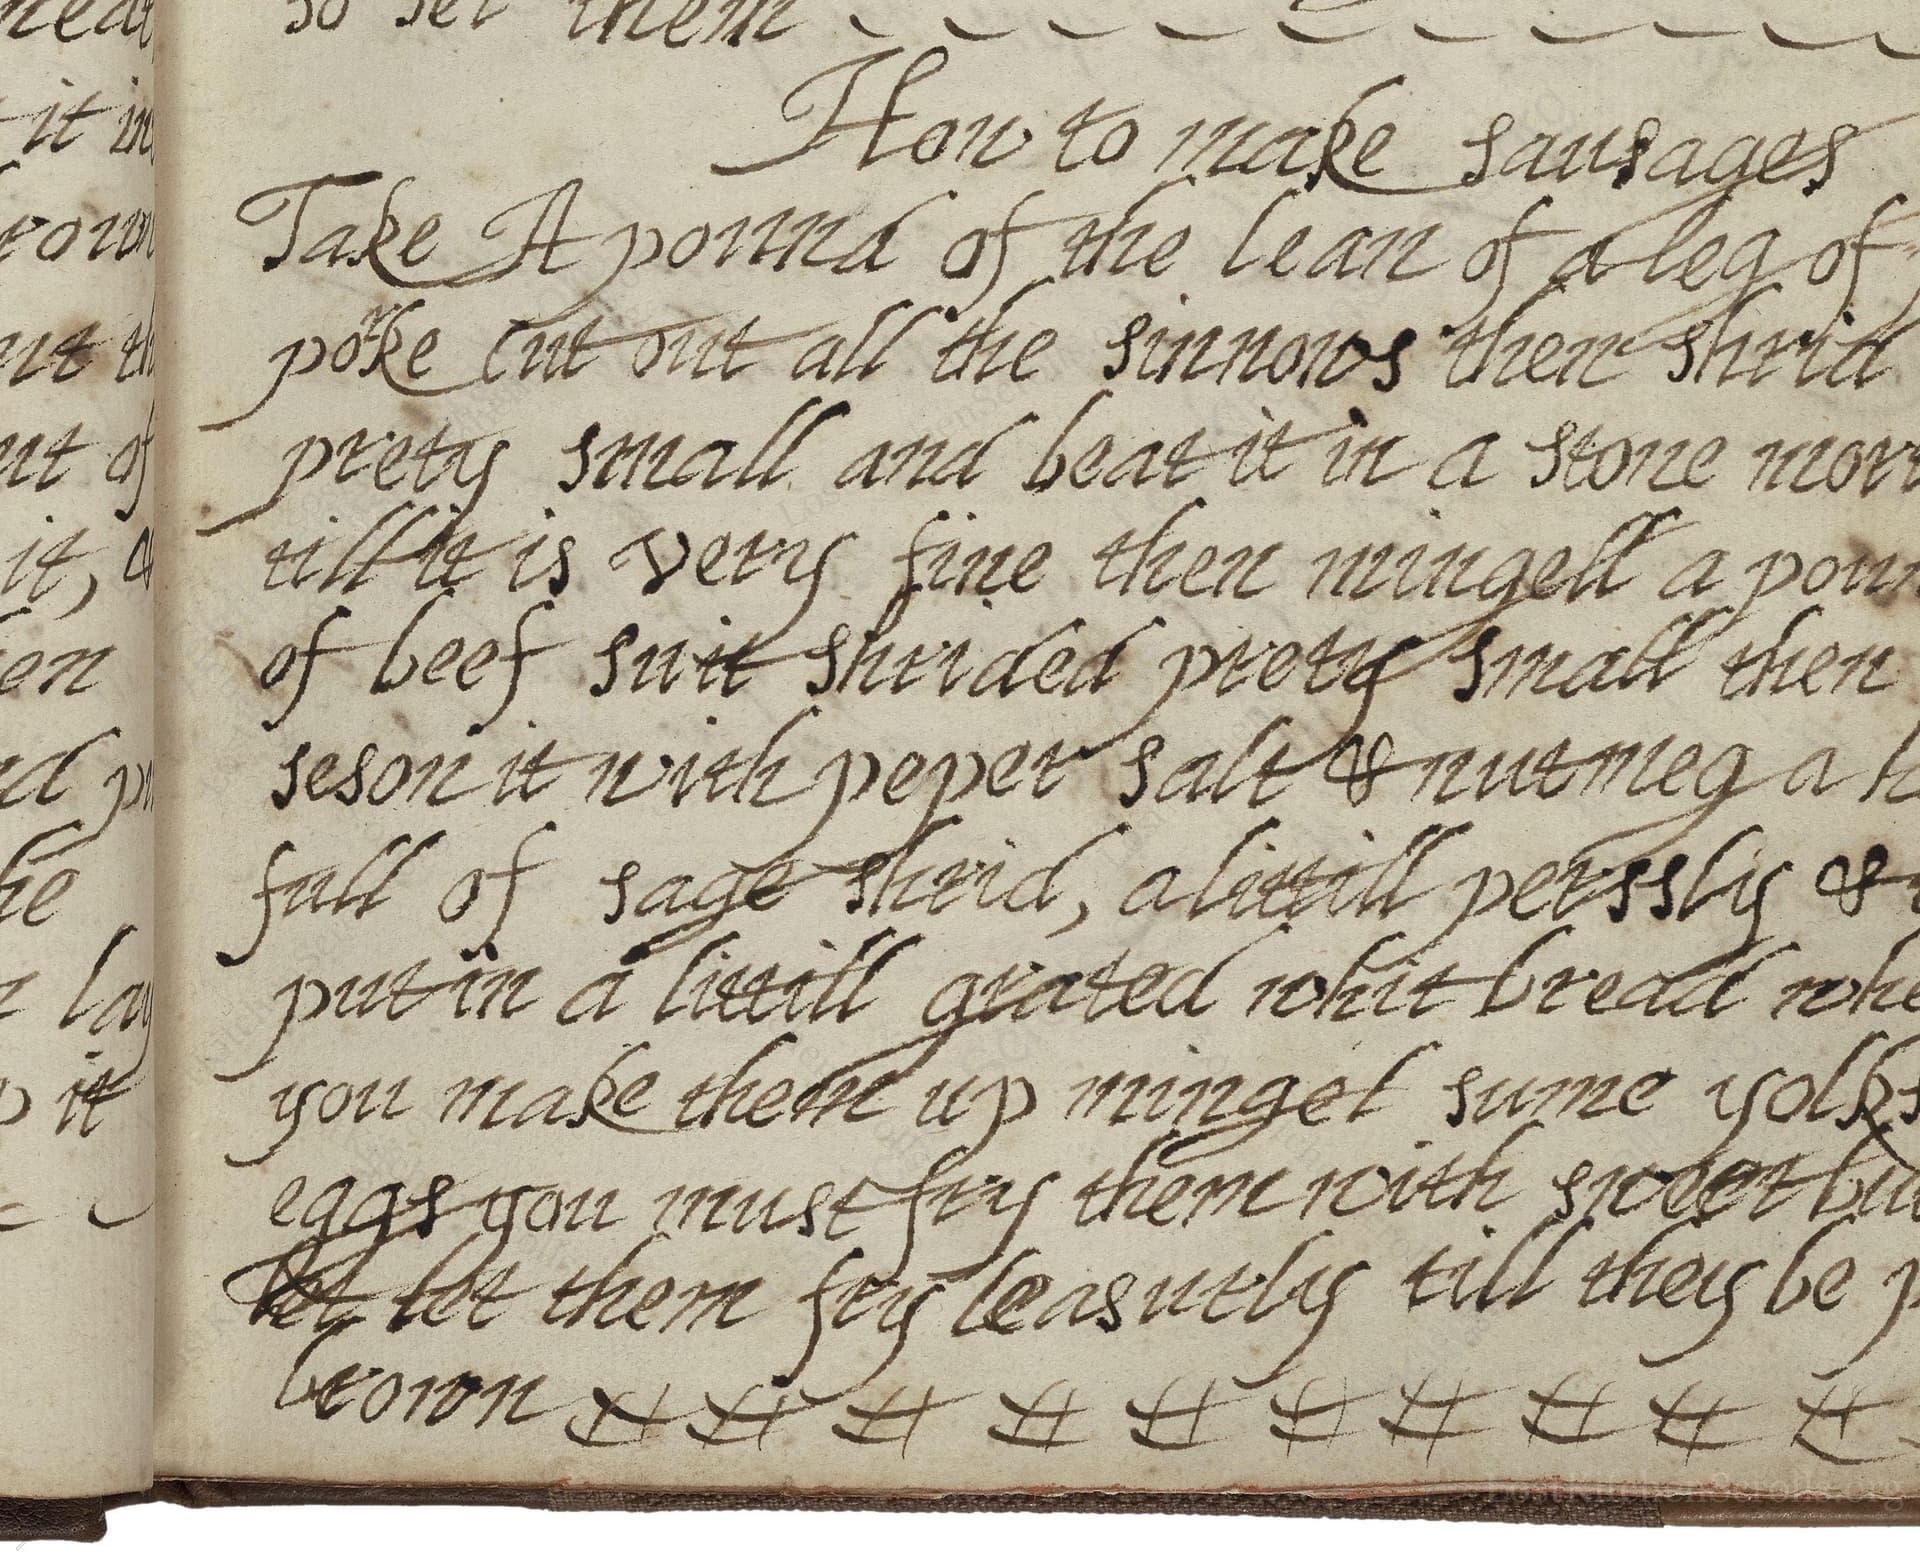 so set them
How to make sausages
Take A pound of the lean of a leg of
porke cut out all the sinnows then shrid
prety small and beat it in a stone mort
till it is very fine then mingell a poun
of beef suit shrided prety small then
seson it with peper salt & nutmeg a h
full of sage shrid, a littill perssly &
put in a littill grated whit bread whe
you make them up mingel sume yolks
eggs you must fry them with sweet but
let let them fry leasurly till they be p
brown
it in
it,
lay
it
LostKitchenScrolls.org